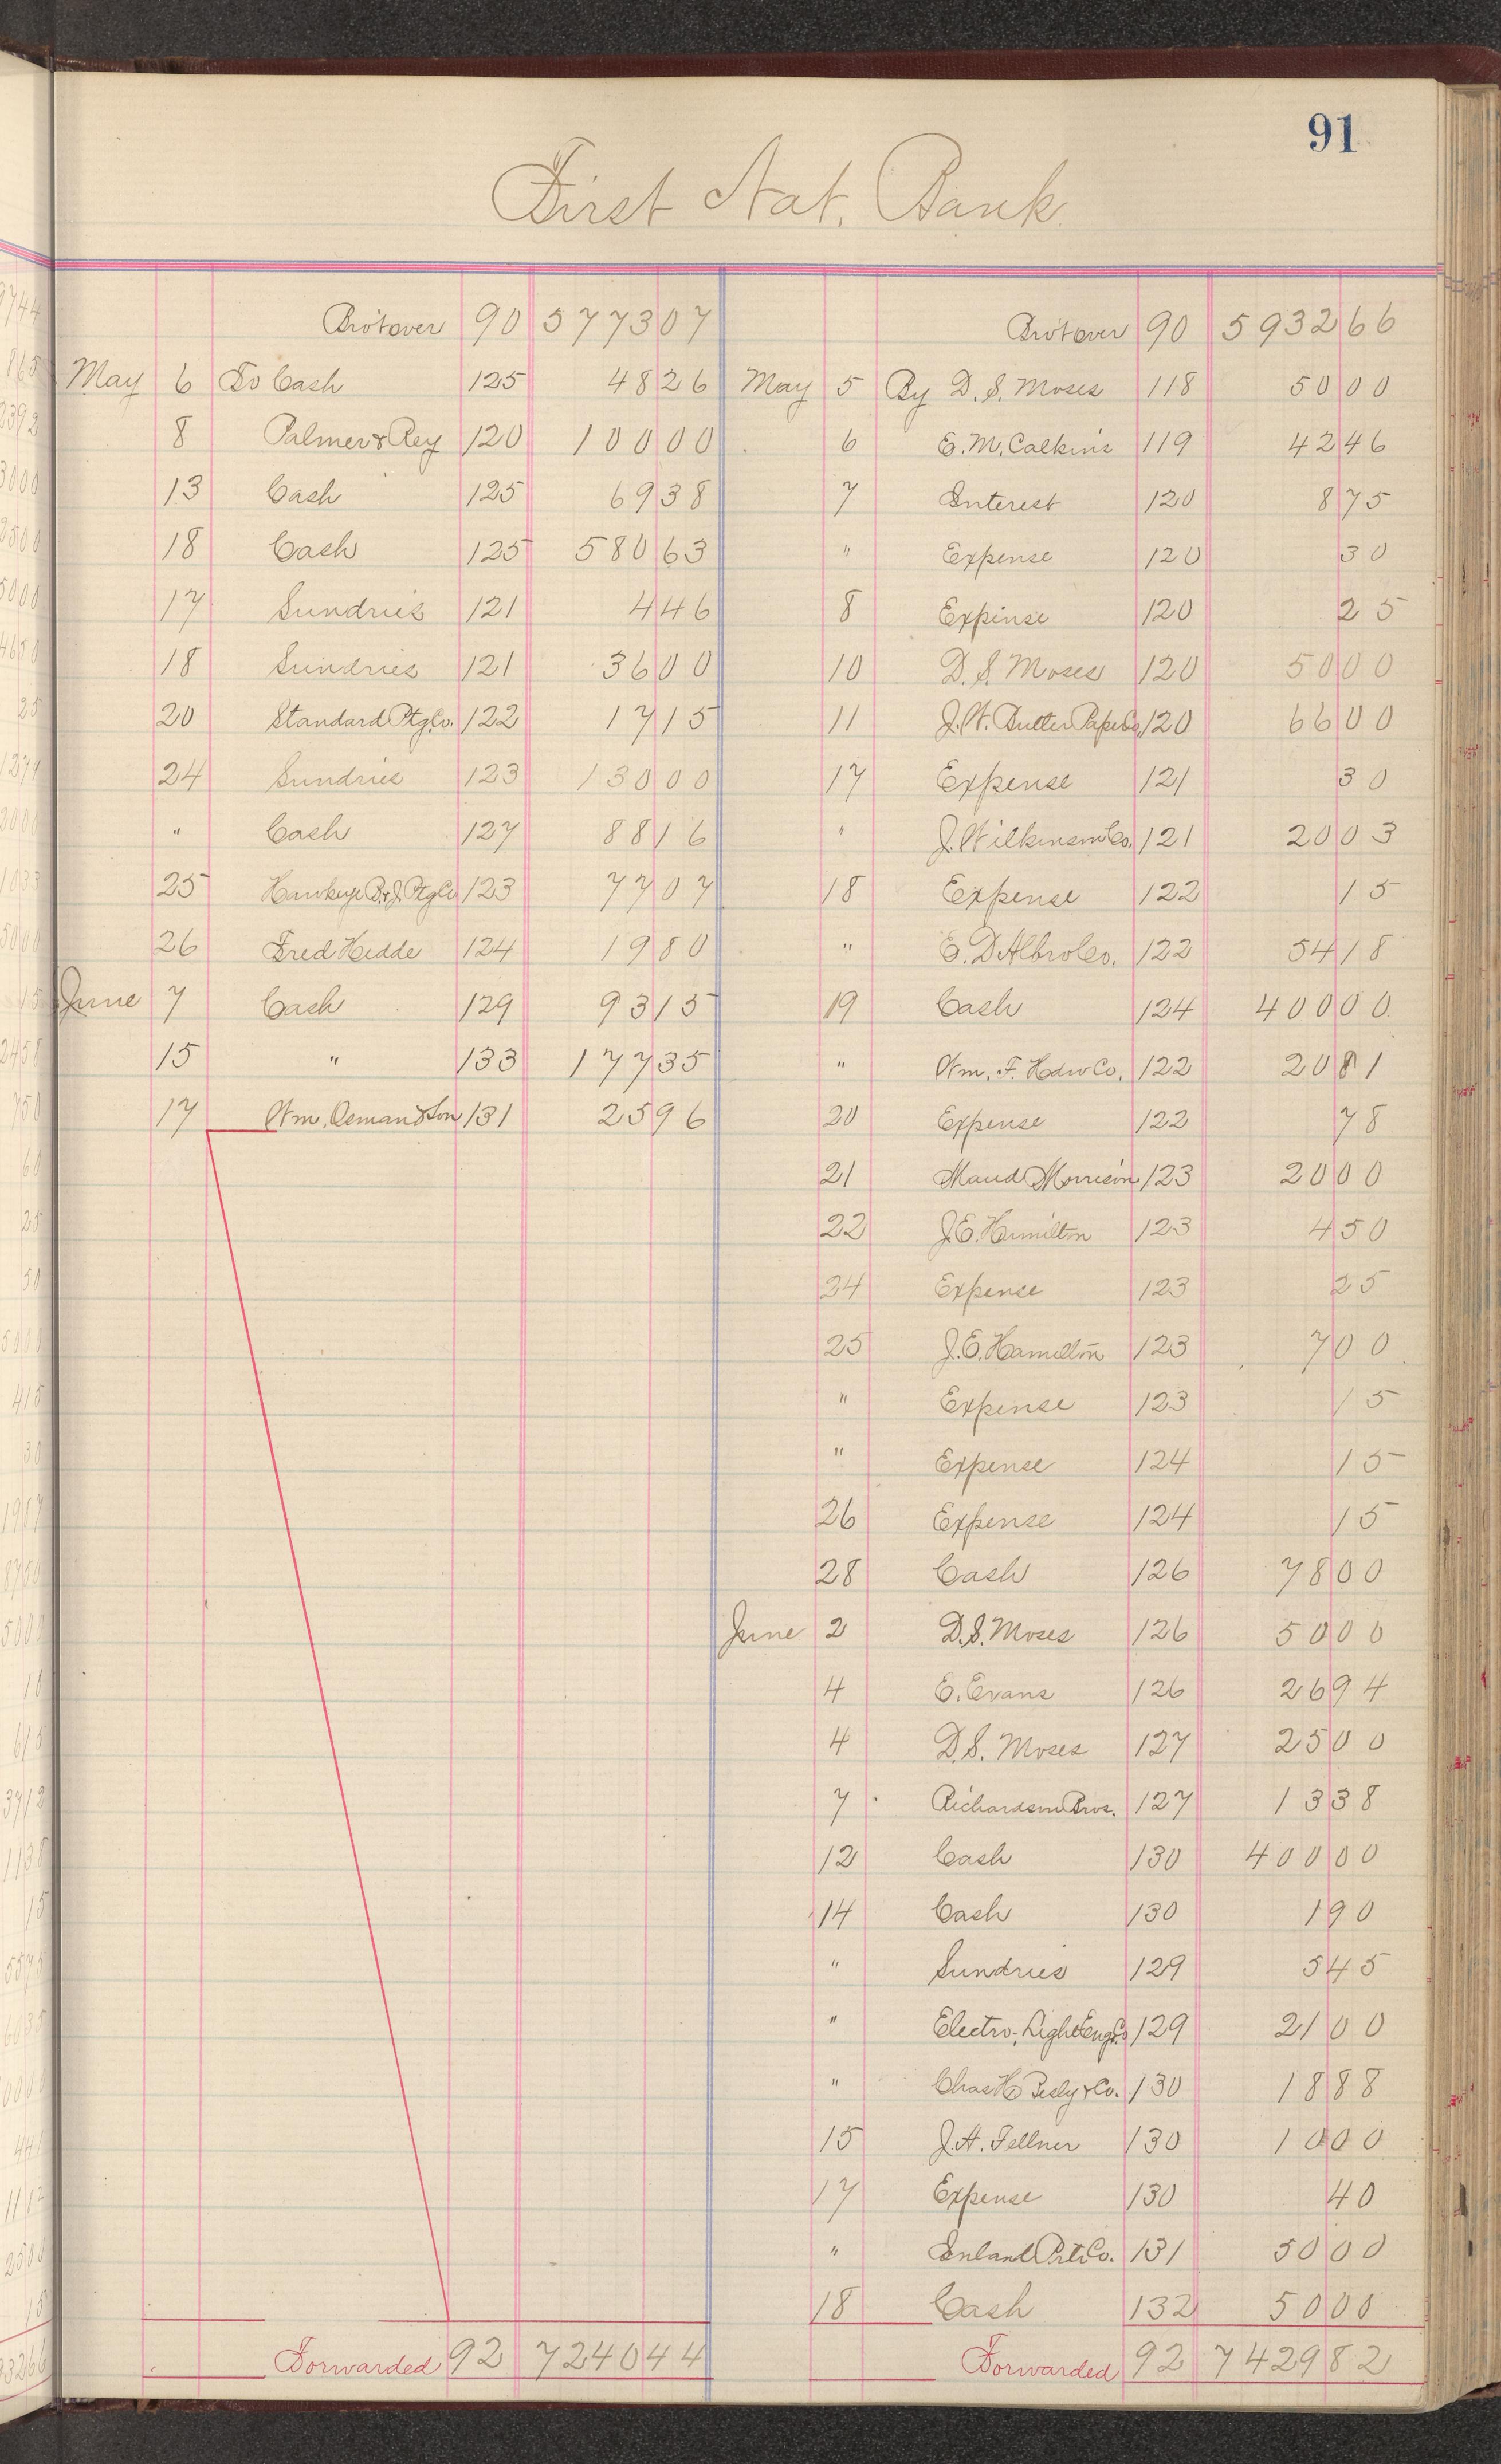 91
First Nat. Bank.
Bro't over 90 5773 07
May 6 To Cash 125 48 26
8 Palmer & Rey 120 100 00
13 Cash 125 69 38
18 Cash 125 580 63
17 Sundries 121 4 46
18 Sundries 121 36 00
20 Standard Ptg Co. 122 17 15
24 Sundries 123 130 00
" Cash 127 88 16
25 Hawkeye B. & J. Ptg Co 123 77 07
26 Fred Hedde 124 19 80
June 7 Cash 129 93 15
15 " 133 177 35
17 Wm. Oeman & Son 131 25 96
Forwarded 92 7240 44
Bro't over 90 5932 66
May 5 By D. S. Moses 118 50 00
6 E. M. Calkins 119 42 46
7 Interest 120 8 75
" Expense 120 30
8 Expense 120 25
10 D. S. Moses 120 50 00
11 J. W. Butler Paper Co. 120 66 00
17 Expense 121 30
" J. Wilkinson Co. 121 20 03
18 Expense 122 15
" E. D. Albro Co. 122 54 18
19 Cash 124 400 00
" Wm. F. Hdw Co. 122 20 81
20 Expense 122 78
21 Maud Morrison 123 20 00
22 J. E. Hamilton 123 4 50
24 Expense 123 25
25 J. E. Hamilton 123 7 00
" Expense 123 15
" Expense 124 15
26 Expense 124 15
28 Cash 126 78 00
June 2 D. S. Moses 126 50 00
4 E. Evans 126 26 94
4 D. S. Moses 127 25 00
7 Richardson Bros. 127 13 38
12 Cash 130 400 00
14 Cash 130 1 90
" Sundries 129 5 45
" Electro-Light Eng. Co 129 21 00
" Chas H. Besly & Co. 130 18 88
15 J. H. Fellner 130 10 00
17 Expense 130 40
" Inland Prt. Co. 131 50 00
18 Cash 132 50 00
Forwarded 92 7429 82